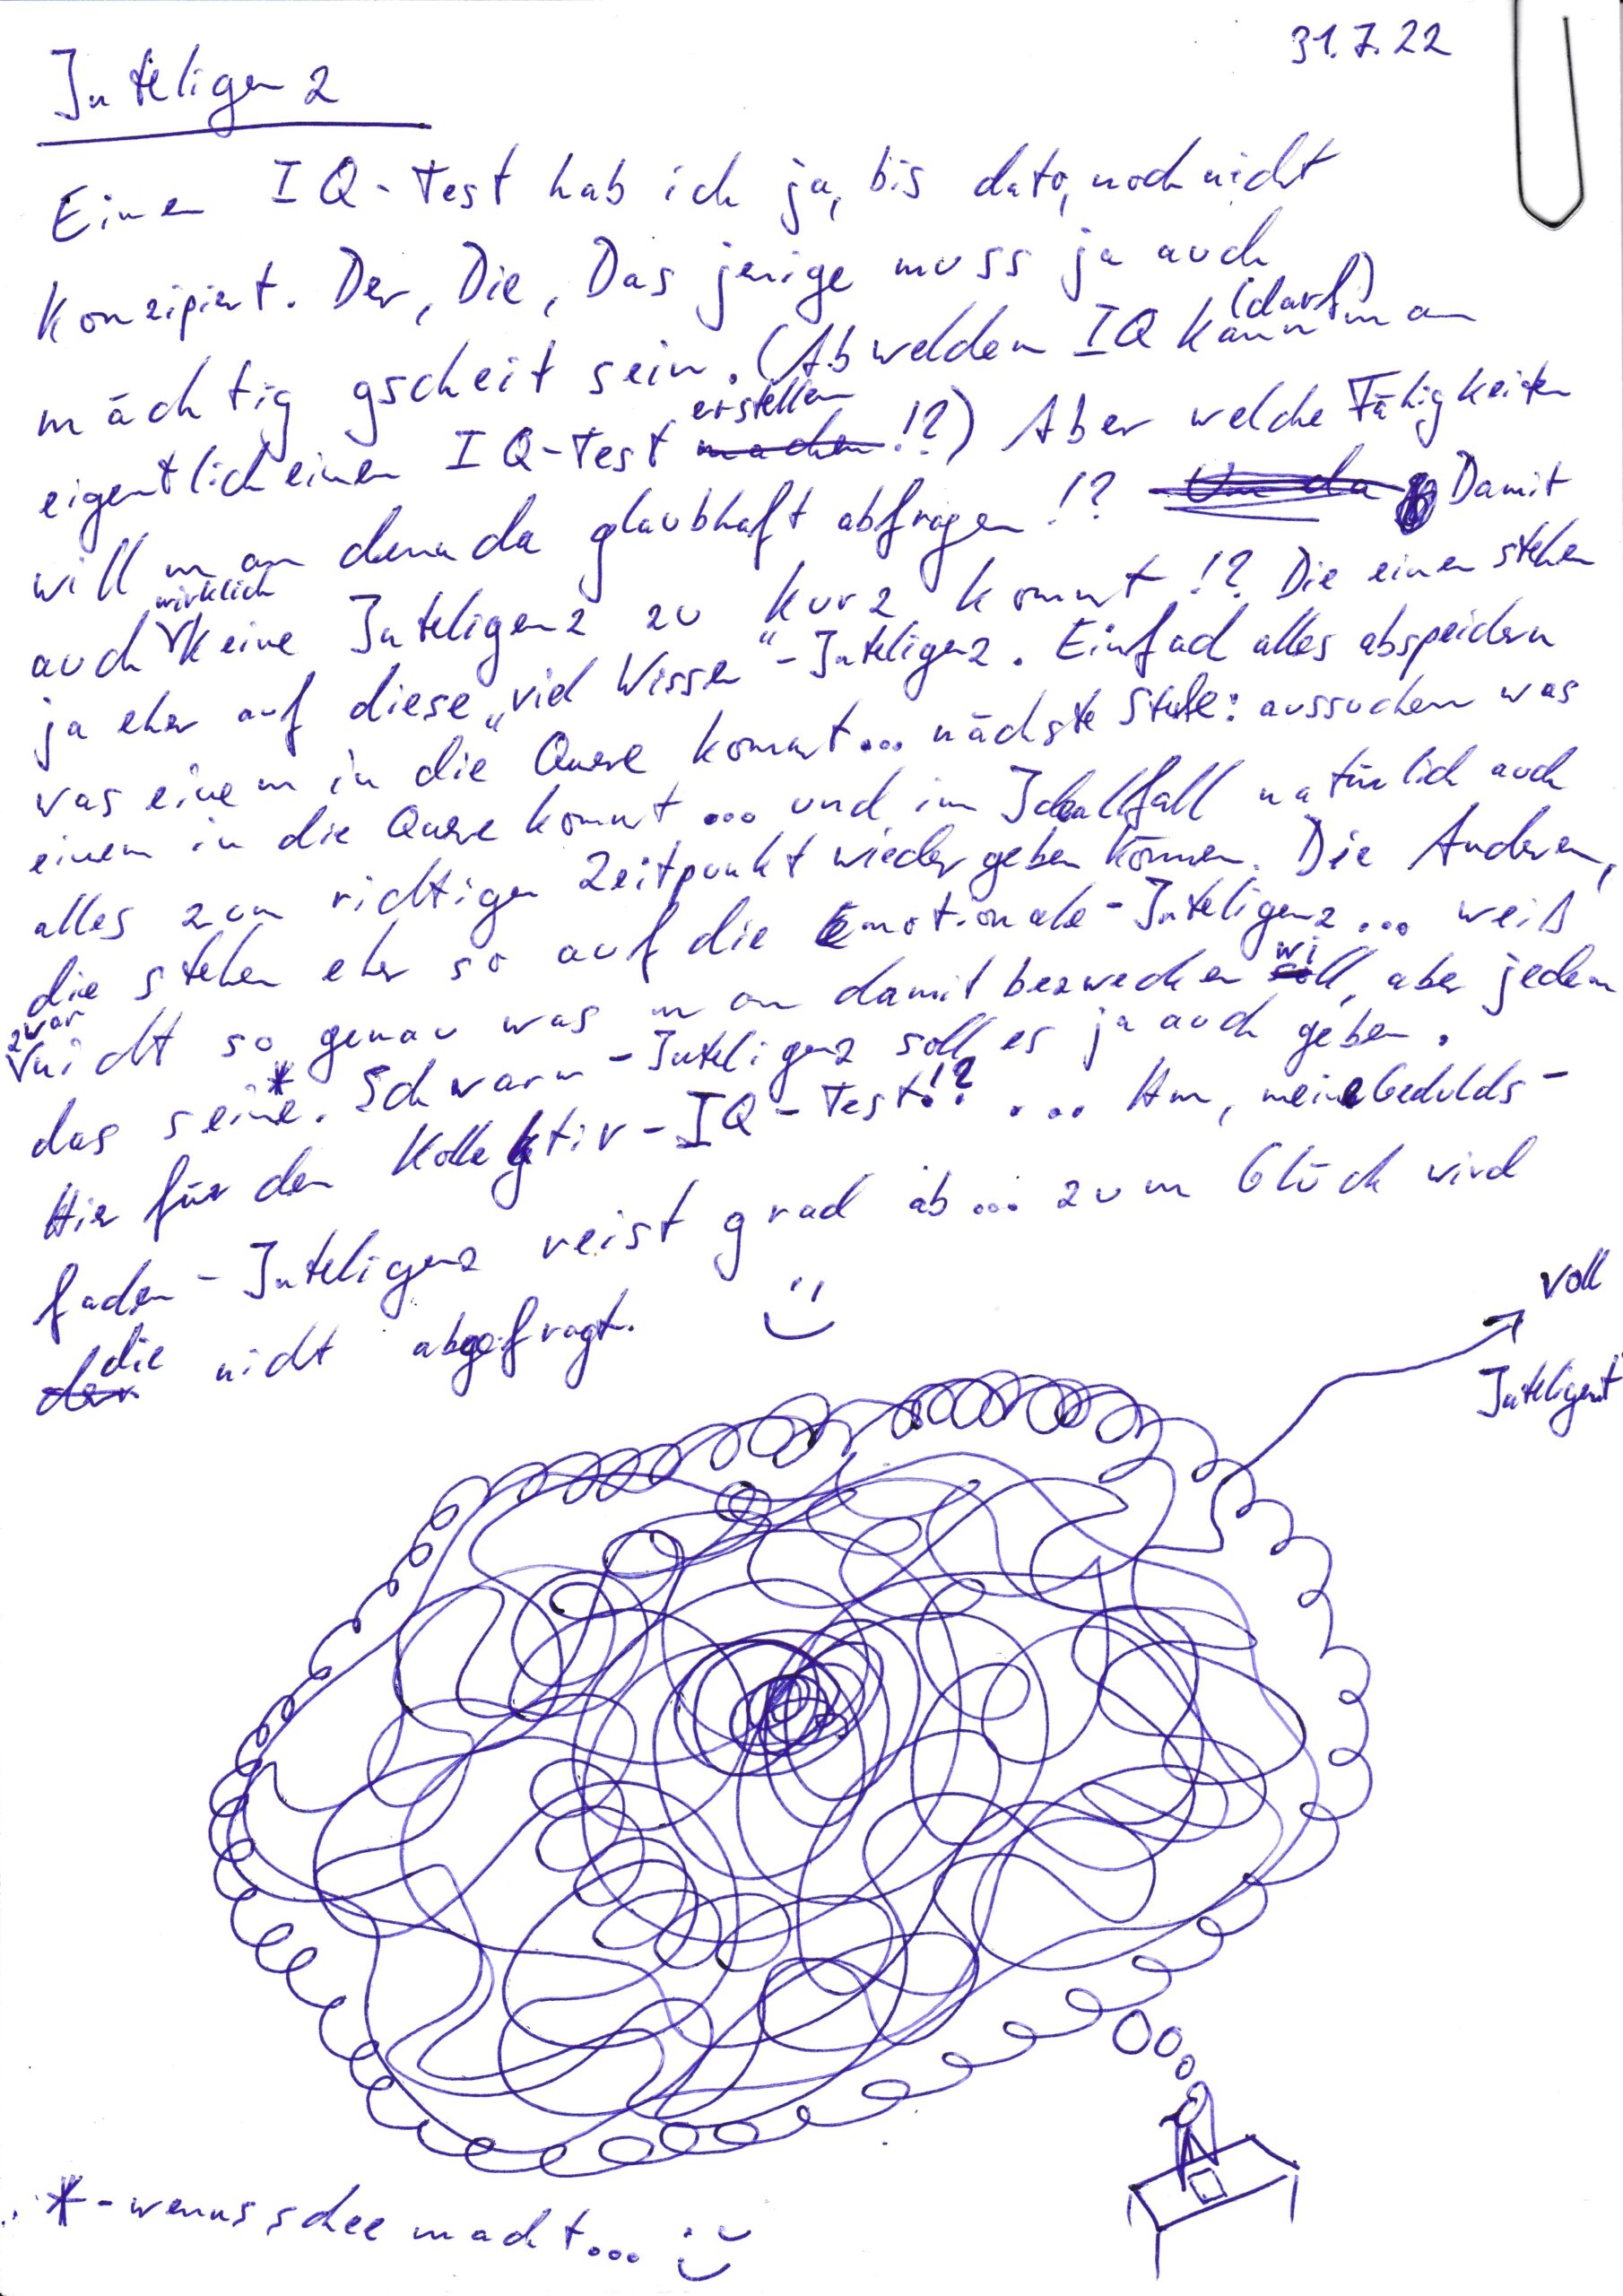 31.7.22
Inteligenz
Einen IQ-Test hab ich ja, bis dato, noch nicht
Konzipiert. Der, Die, Das jenige muss ja auch
mächtig gscheit sein. (Ab welchem IQ kann (darf) man
eigentlich einen IQ-Test machen erstellen!?) Aber welche Fähigkeiten
will man denn da glaubhaft abfragen!? Um da Damit
auch wirklich keine Inteligenz zu kurz kommt!? Die einen stehen
ja eher auf diese „viel Wissen"-Inteligenz. Einfach alles abspeichern
was einem in die Quere kommt... nächste Stufe: aussuchen was
einem in die Quere kommt... und im Idealfall natürlich auch
alles zum richtigen Zeitpunkt wieder geben können. Die Anderen,
die stehen eher so auf die Emotionale-Inteligenz... weiß
zwar nicht so genau was man damit bezwecken will, aber jedem
das seine.* Schwarm-Inteligenz soll es ja auch geben.
Hier für den Kollektiv-IQ-Test!? ... Hm, meine Gedulds-
faden-Inteligenz reist grad ab... zum Glück wird
der die nicht abgefragt.
voll
Inteligent
*-wenns schee macht...